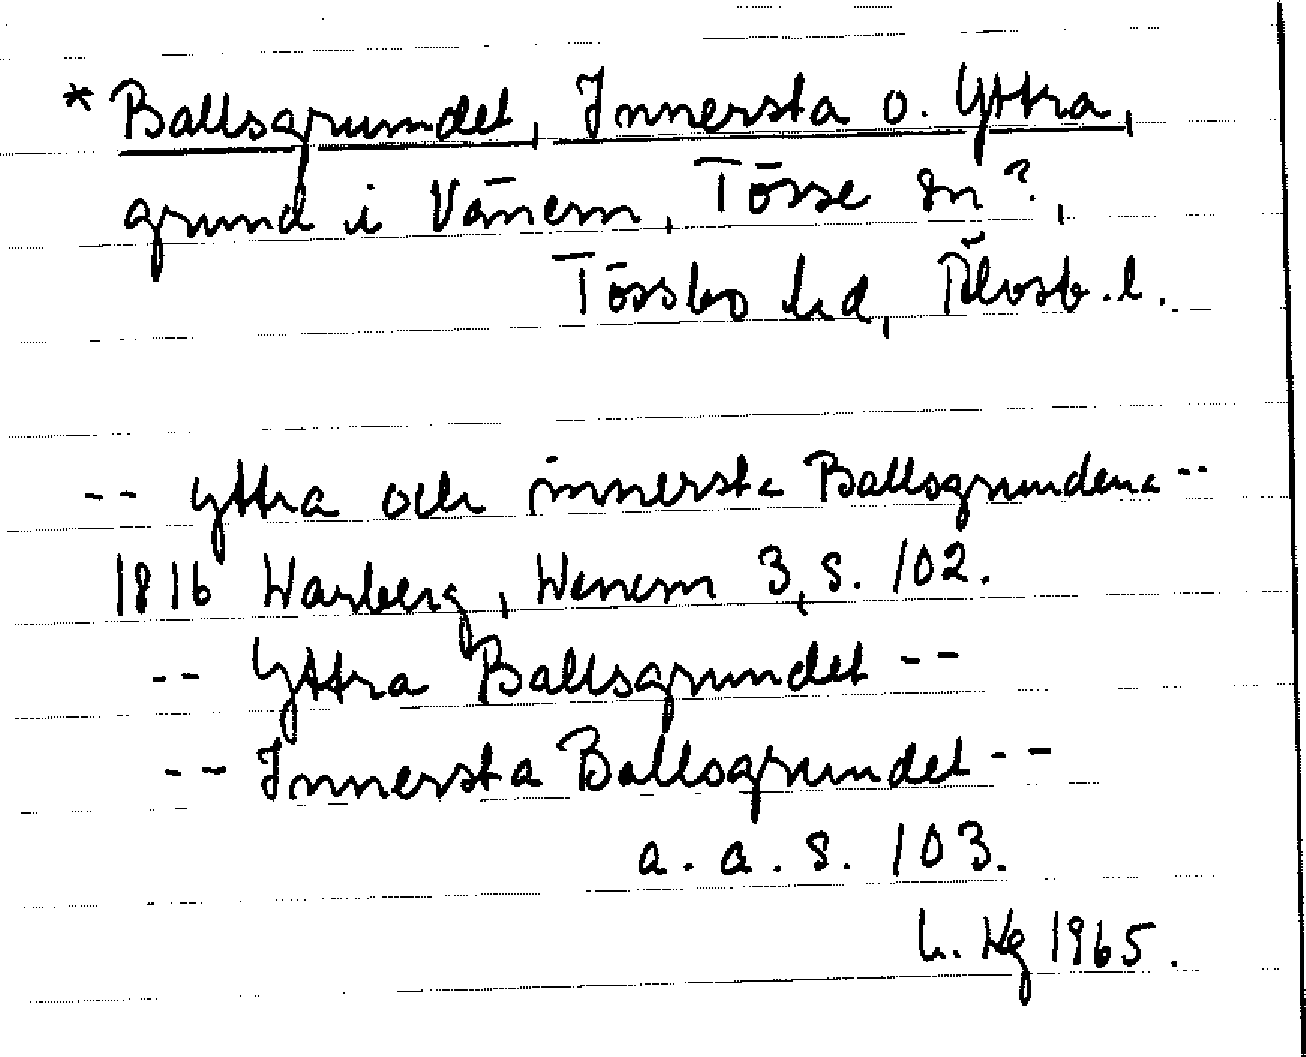 * Ballsgrundet, Innersta o. Yttra,
grund i Vänern, Tösse sn?,
Tössbo hd, Älvsb. l.
-- yttra och innersta Ballsgrundena --
1816 Warberg, Wenern 3, s. 102.
-- Yttra Ballsgrundet --
-- Innersta Ballsgrundet --
a. a. s. 103.
L. Hg 1965.